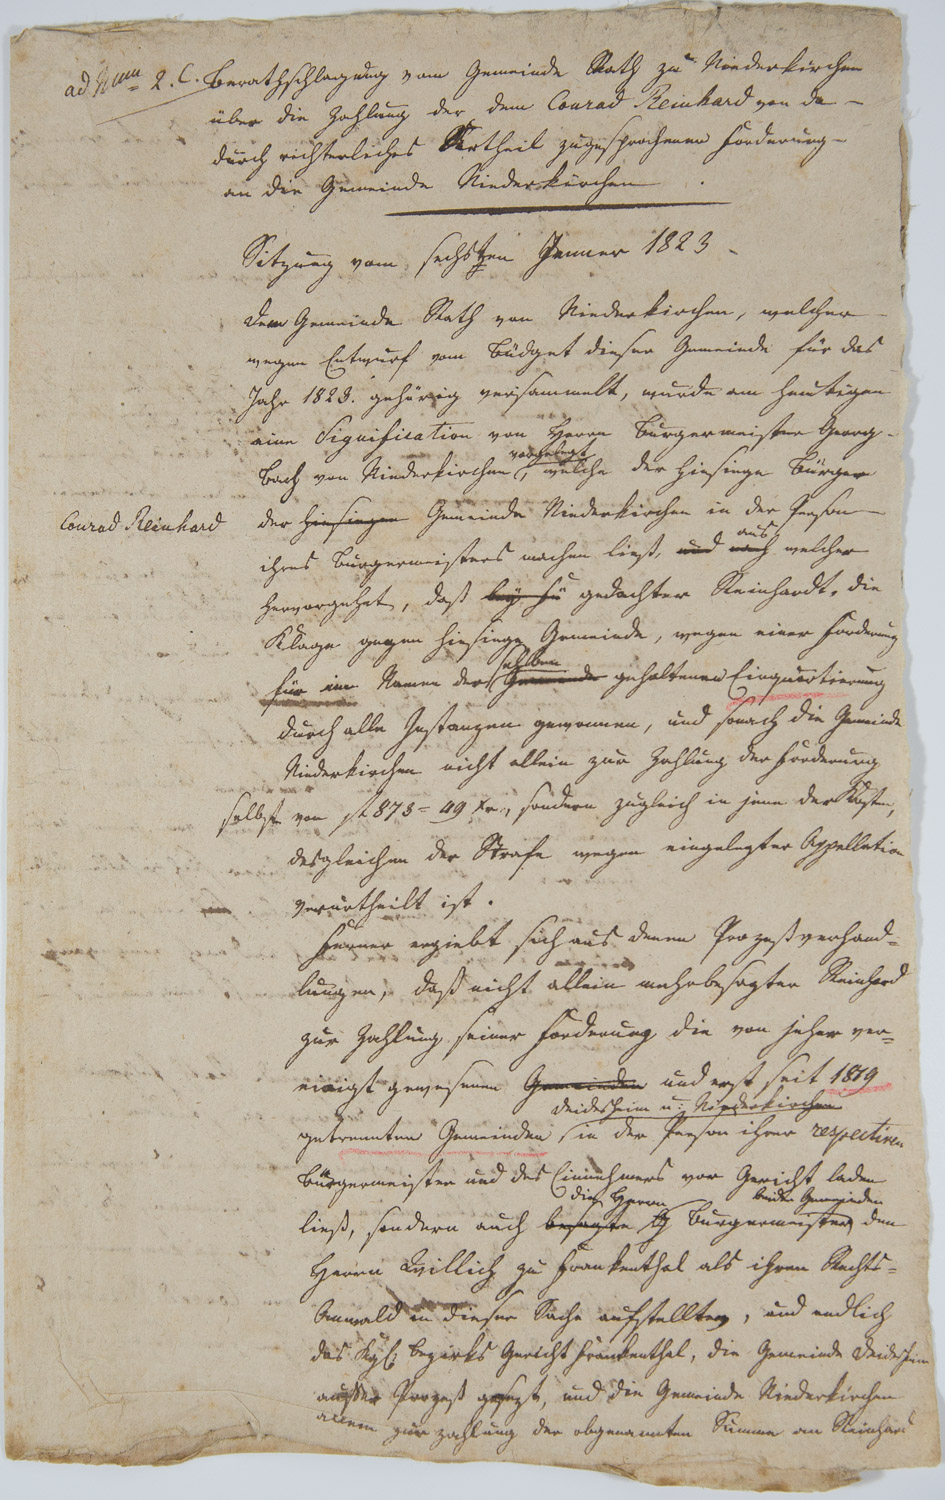 ad Num 2. C. Berathschlagung vom Gemeinde Rath zu Niederkirchen
über die Zahlung der dem Conrad Reinhard von da
durch richterliches Urtheil zugesprochenen Forderung
an die Gemeinde Niederkirchen.
Sitzung vom sechsten Jenner 1823
Dem Gemeinde Rath von Niederkirchen, welcher
wegen Entwurf vom Büdget dieser Gemeinde für das
Jahr 1823. gehörig versammelt, wurde am heutigen
eine Signification von Herrn Burgermeister Georg
vorgelegt
Bach von Niederkirchen, welche der hiesige Bürger
Conrad Reinhard der hiesigen Gemeinde Niederkirchen in der Person
aus
ihres Burgermeisters machen ließ, und nach welcher
hervorgehet, daß gedachter Reinhardt, die
Klage gegen hiesige Gemeinde, wegen einer Forderung
selben
für im Namen der Gemeinde gehaltenen Einquartierung
durch alle Instanzen gewonnen, und sonach die Gemeinde
Niederkirchen nicht allein zur Zahlung der Forderung
selbst von fl 873 - 49 xr., sondern zugleich in jene der Kosten,
desgleichen der Strafe wegen eingelegter Appellation
verurtheilt ist.
Ferner ergiebt sich aus denen Prozeßverhand=
lungen, daß nicht allein mehrbesagter Reinhard
zur Zahlung seiner Forderung die von jeher ver=
einigt gewesenen Gemeinden und erst seit 1819
Deidesheim u: Niederkirchen
getrennten Gemeinden in der Person ihrer respectiven
Bürgermeister und des Einnehmers vor Gericht laden
die Herrn beider Gemeinden
ließ, sondern auch besagte Burgermeister den
Herrn Willich zu Frankenthal als ihren Rechts=
Anwald in dieser Sache aufstellten, und endlich
das Kgl. Bezirks Gericht Frankenthal, die Gemeinde Deidesheim
ausser Prozeß gesezt, und die Gemeinde Niederkirchen
allein zur Zahlung der obgenannten Summe an Reinhard